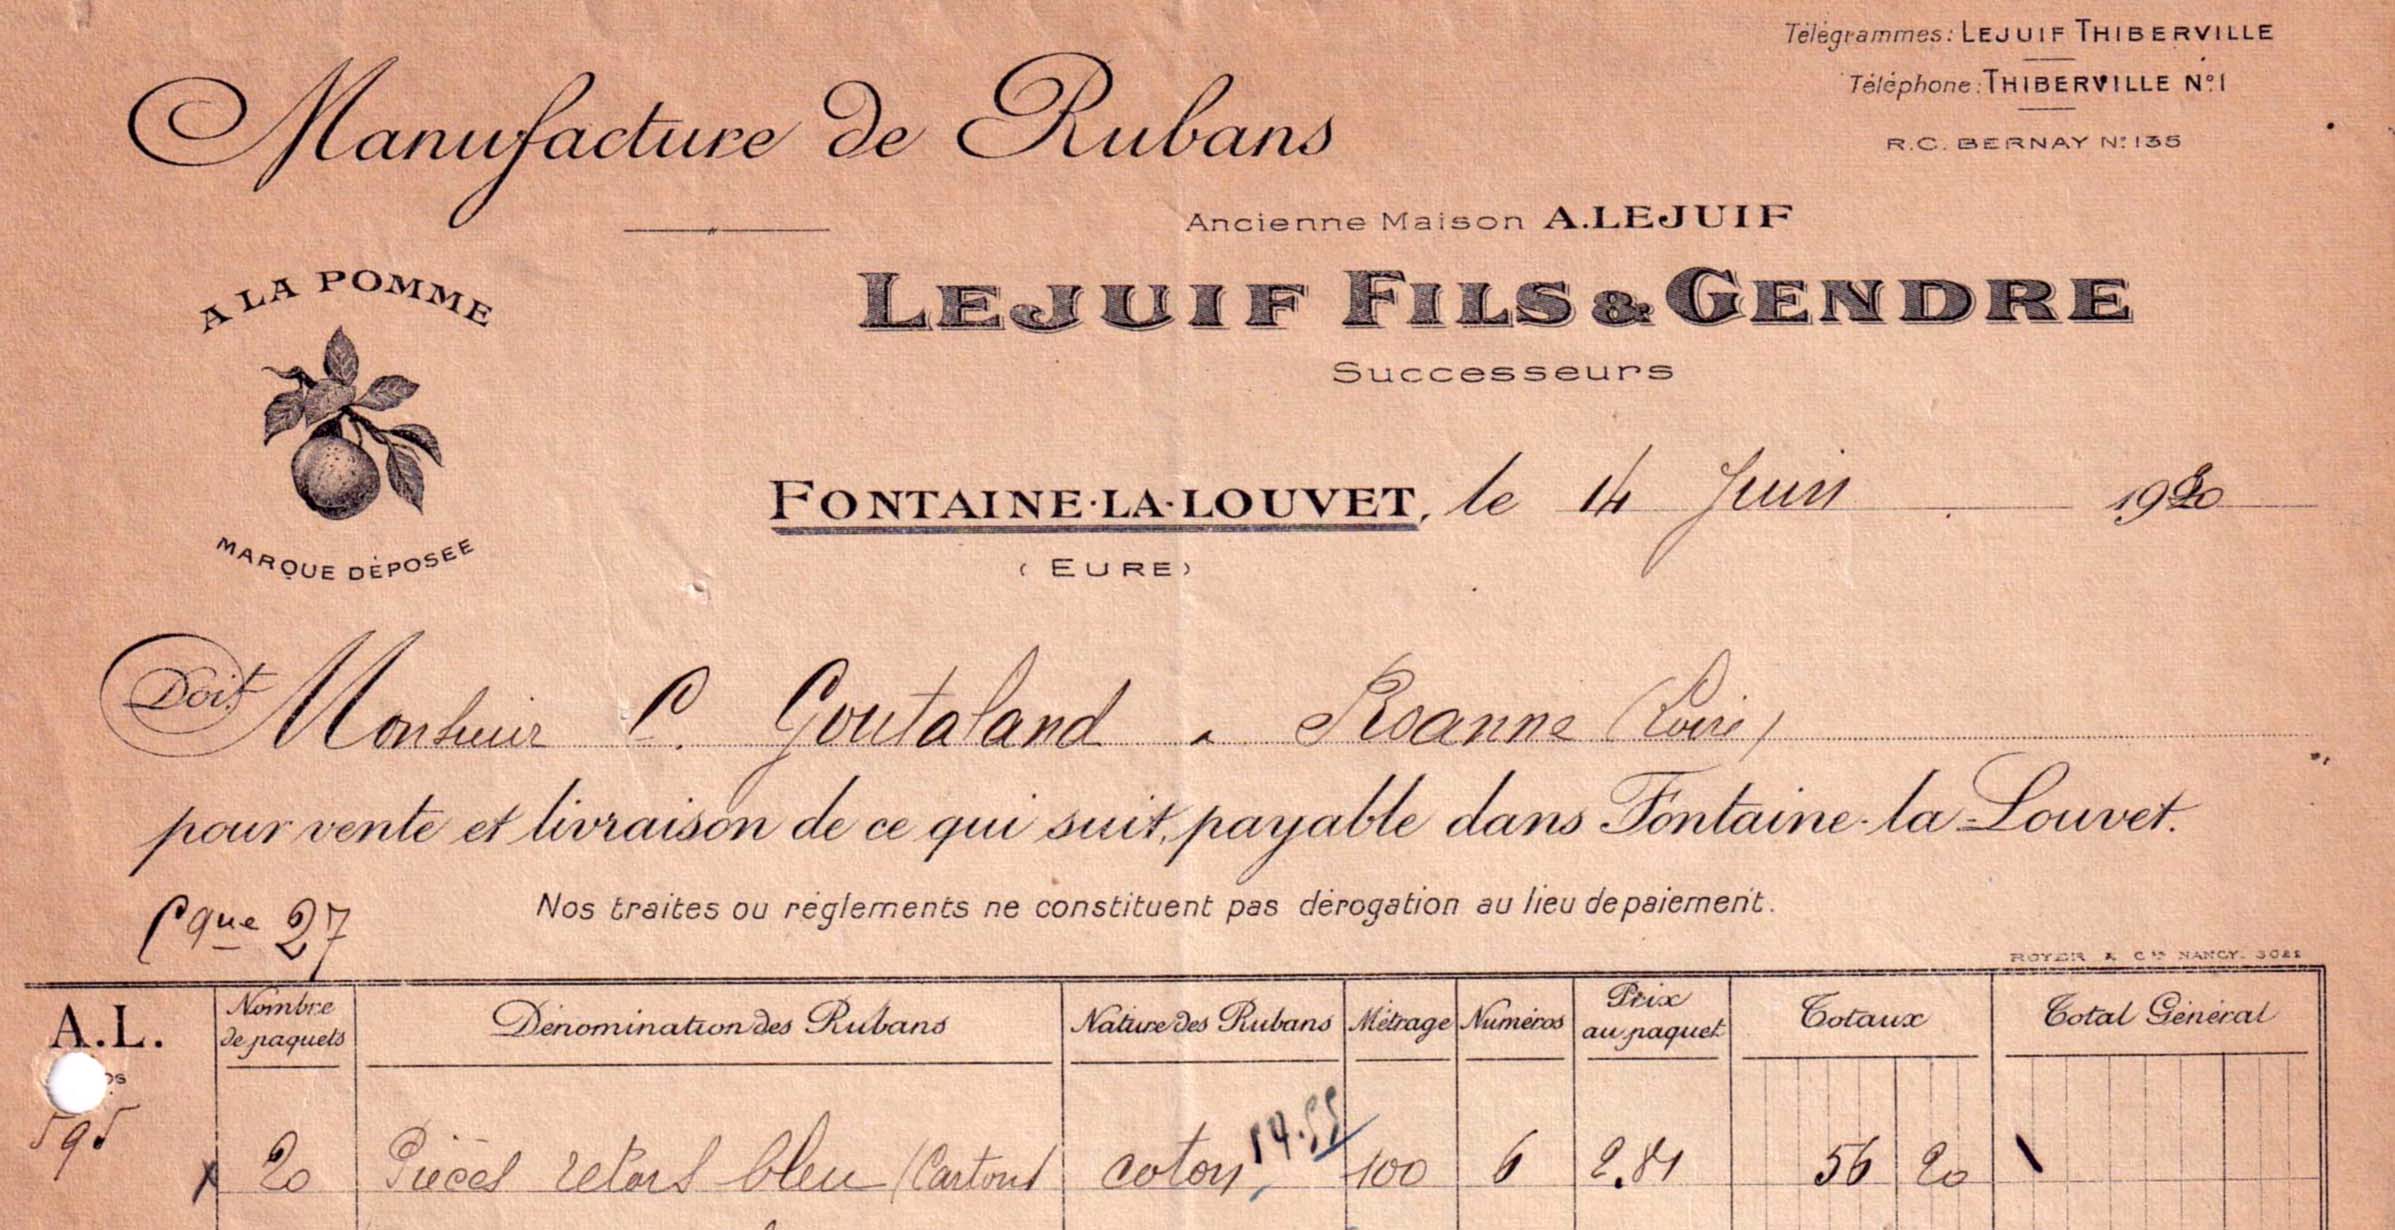 Télégrammes: LEJUIF THIBERVILLE
Téléphone: THIBERVILLE Nº 1
R.C. BERNAY Nº 135
Manufacture de Rubans
Ancienne Maison A. LEJUIF
LEJUIF FILS & GENDRE
Successeurs
A LA POMME
MARQUE DÉPOSÉE
FONTAINE-LA-LOUVET, le 14 Juin 1920
(EURE)
Doit Monsieur C. Goutaland à Roanne (Loire)
pour vente et livraison de ce qui suit, payable dans Fontaine-la-Louvet.
Cque 27
Nos traites ou règlements ne constituent pas dérogation au lieu de paiement.
ROYER & Cie NANCY.
A.L.
Nombre de paquets
Dénomination des Rubans
Nature des Rubans
Métrage
Numéros
Prix au paquet
Totaux
Total Général
595
x 20 Pièces retors bleu (Cartons coton 14.55 100 6 2.81 56 20